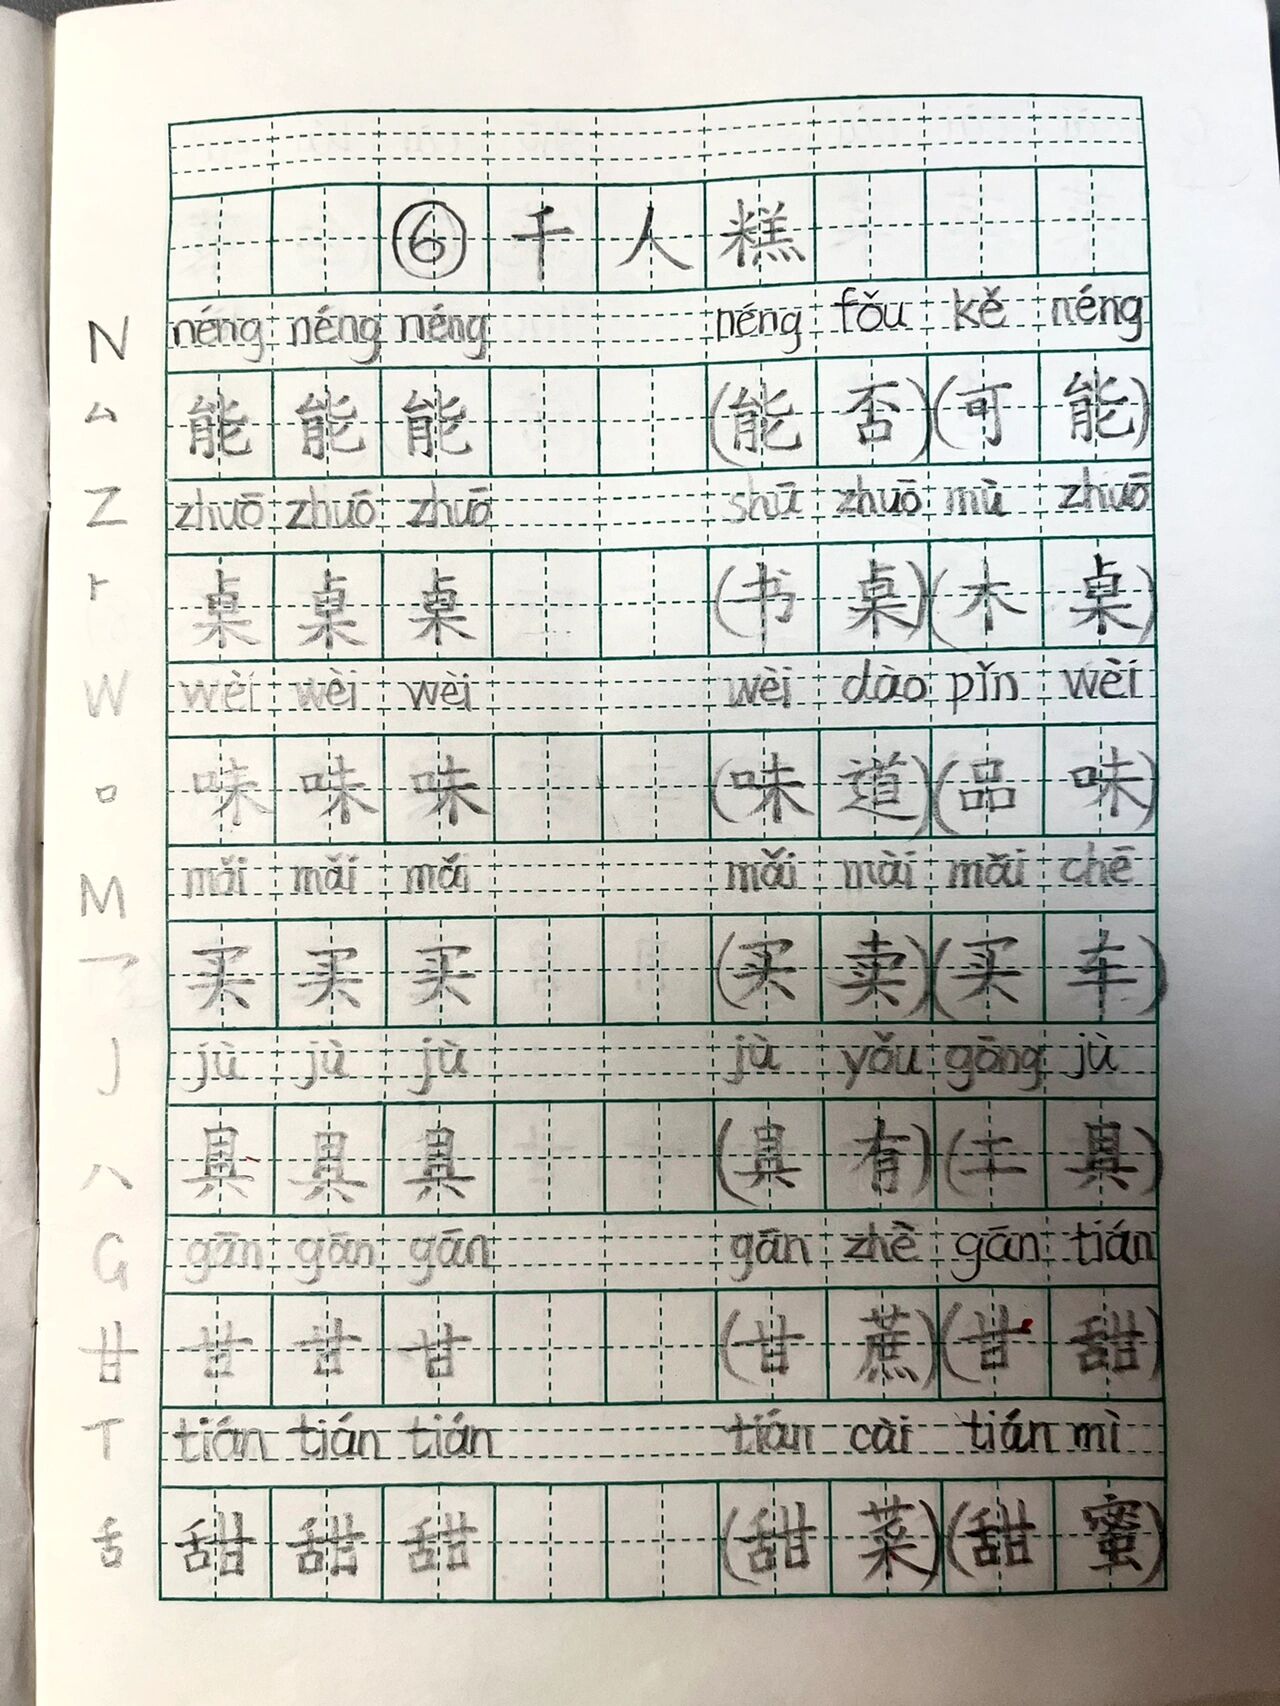 ⑥ 千人糕
N néng néng néng néng fǒu kě néng
厶 能 能 能 (能 否)(可 能)
Z zhuō zhuō zhuō shū zhuō mù zhuō
⺊ 桌 桌 桌 (书 桌)(木 桌)
W wèi wèi wèi wèi dào pǐn wèi
口 味 味 味 (味 道)(品 味)
M mǎi mǎi mǎi mǎi mài mǎi chē
乛 买 买 买 (买 卖)(买 车)
J jù jù jù jù yǒu gōng jù
八 具 具 具 (具 有)(工 具)
G gān gān gān gān zhè gān tián
甘 甘 甘 甘 (甘 蔗)(甘 甜)
T tián tián tián tián cài tián mì
舌 甜 甜 甜 (甜 菜)(甜 蜜)